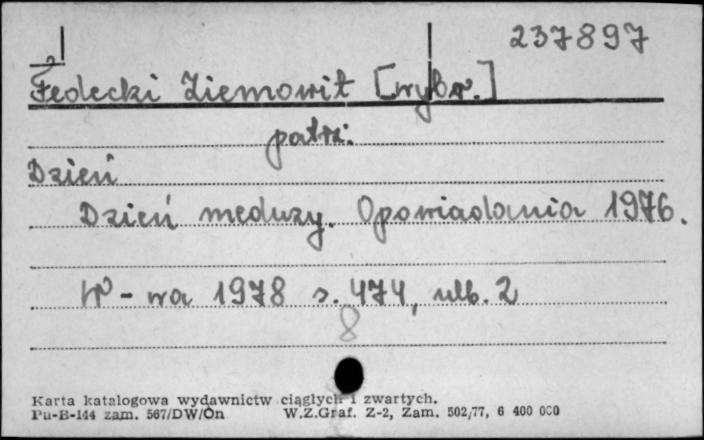 237897
Fedecki Ziemowit [wybr.]
patrz:
Dzień
Dzień meduzy. Opowiadania 1976.
W-wa 1978 s. 474, nlb. 2
8
Karta katalogowa wydawnictw ciągłych i zwartych.
Pu-B-144 zam. 567/DW/On W.Z.Graf. Z-2, Zam. 502/77, 6 400 000